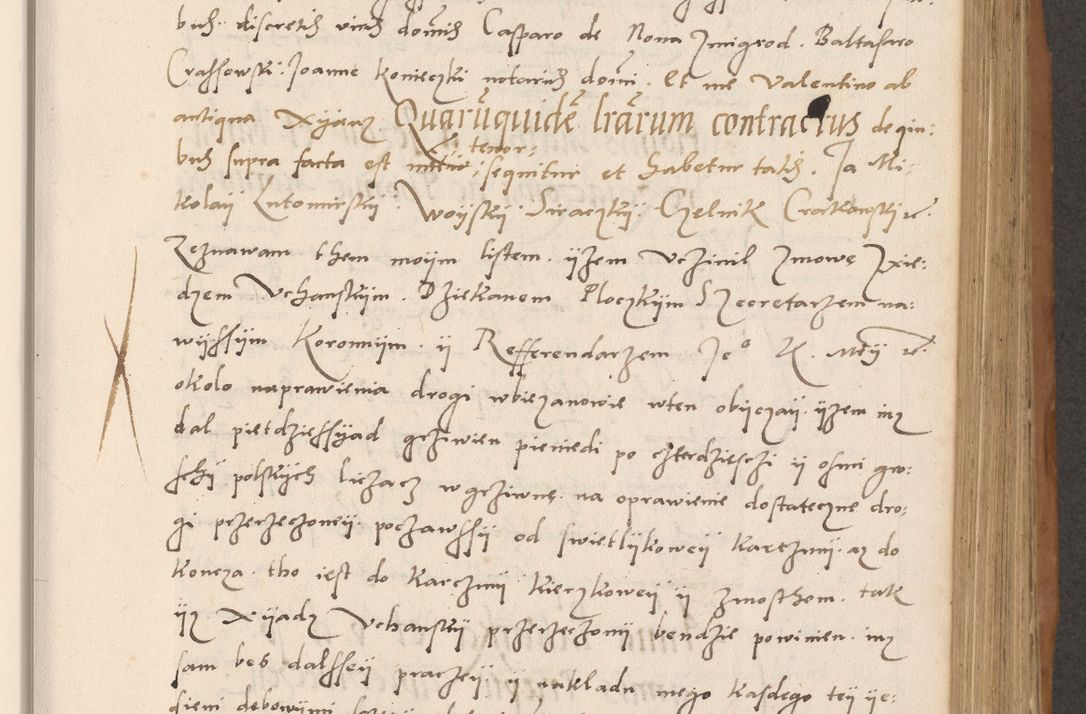 bus discretis viris dominis Casparo de Nova Zmigrod. Baltasaro
Crassowski. Joanne Konieczki notariis domini. Et me Valentino ab
antiqua Xyanz Quarumquidem lrarum contractus de qui:
bus supra facta est mentio tenor sequitur et habetur talis. Ja Mi:
kolaij Lutomirskij Woijskij Siraczkij Czelnik Crakowskij
Zeznawam them moijm listem. ijzem Vczinil Zmowę Zxie:
dzem Vchanskijm. Dziekanem Ploczkijm Szecretarzem na:
wijssijm Koronnijm. ij Refferendarzem Jeo K. Mczij
okolo naprawienia drogi wbiezanowie wten obijczaij. ijzem mu
dal pietdziessijad grziwien pieniedi po czterdziesczi ij osmi gro:
schij polskijch liczacz w grziwnę. na oprawienie dostateczne dro:
gi przerzeczoneij. poczawssij od swietlijkoweij karczmij. az do
koncza. tho iest do karczmij Kieczkoweij ij zmosthem. tak
ijz Xijadz Vchanskij przerzeczonij bendzie powinien. mu
sam bes dalsseij praczeij. ij nakladu mego kasdego teij ije:
sieni debowijmi